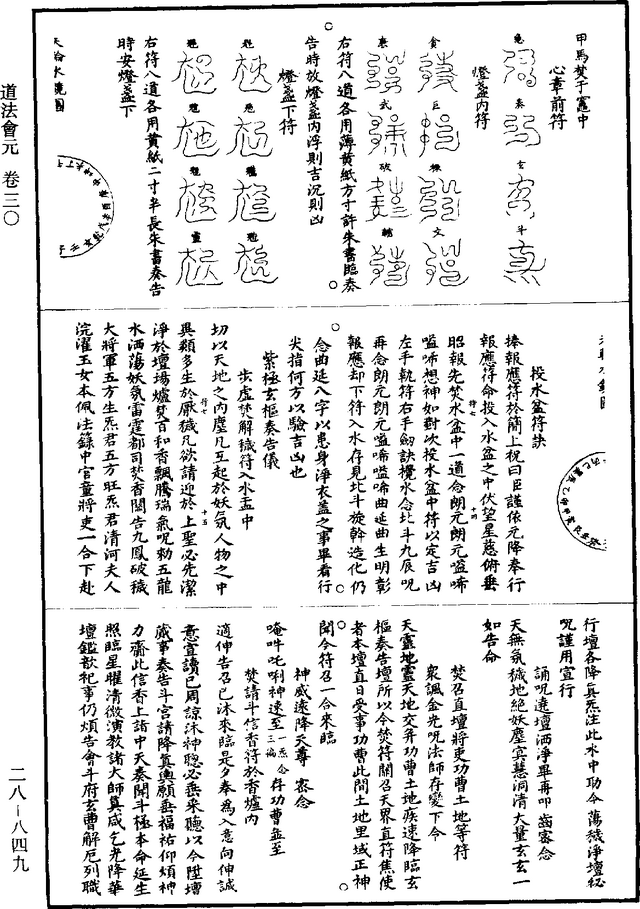 道法會元 卷三〇
二八-八四九
甲馬焚于竈中
心章前符
燈盞內符
右符八道各用薄黃紙方寸許朱書臨奏
告時放燈盞內浮則吉沉則凶
燈盞下符
右符八道各用黃紙二寸半長朱書奏告
時安燈盞下
投水盆符訣
捧報應符於簡上祝曰臣謹依元降奉行
報應符命投入水盆之中伏望星慈俯垂
昭報先焚水盆中一道念朗元朗元嗌唏
嗌唏想神如對次投水盆中符以定吉凶
左手執符右手劒訣攪水念北斗九辰呪
再念朗元朗元嗌唏嗌唏曲延曲生明彰
報應却下符入水存見北斗旋斡造化仍
念曲延八字以患身淨衣蓋之事畢看行
尖指何方以驗吉凶也
紫極玄樞奏告儀
步虛焚解穢符入水盂中
切以天地之內塵凡互起於妖氛人物之中
異類多生於厭穢凡欲請迎於上聖必先潔
淨於壇場爐焚百和香飄騰瑞氣呪勑五龍
水洒蕩妖氛雷霆都司焚香關告九鳳破穢
大將軍五方生炁君五方旺炁君清河夫人
浣濯玉女本佩法籙中官童將吏一合下赴
行壇各降真炁注此水中助令蕩穢淨壇秘
呪謹用宣行
誦呪遶壇洒淨畢再叩齒密念
天無氛穢地絕妖塵冥慧洞清大量玄玄一
如告命
焚召直壇將吏功曹土地等符
衆諷金光呪法師存變下令
天靈地靈天地交并功曹土地疾速降臨玄
樞奏告壇所以今焚符關召天界直符焦使
者本壇直日受事功曹此間土地里域正神
聞令符召一合來臨
神威遠降天尊 密念
唵吽吒唎神速至 一炁念三徧 拜功曹並至
焚請斗信香符於香爐內
適伸告召已沐來臨是夕奉為入意向伸誠
意宣讀已周諒沐神聰必垂采聽以今陞壇
蕆事奏告斗宮請降真輿願垂福祐仰煩神
力齎此信香上詣中天奏聞斗極本命延生
照臨星躍清微演教諸大師真咸乞光降華
壇鑑歆祀事仍煩告會斗府玄曹解厄列職